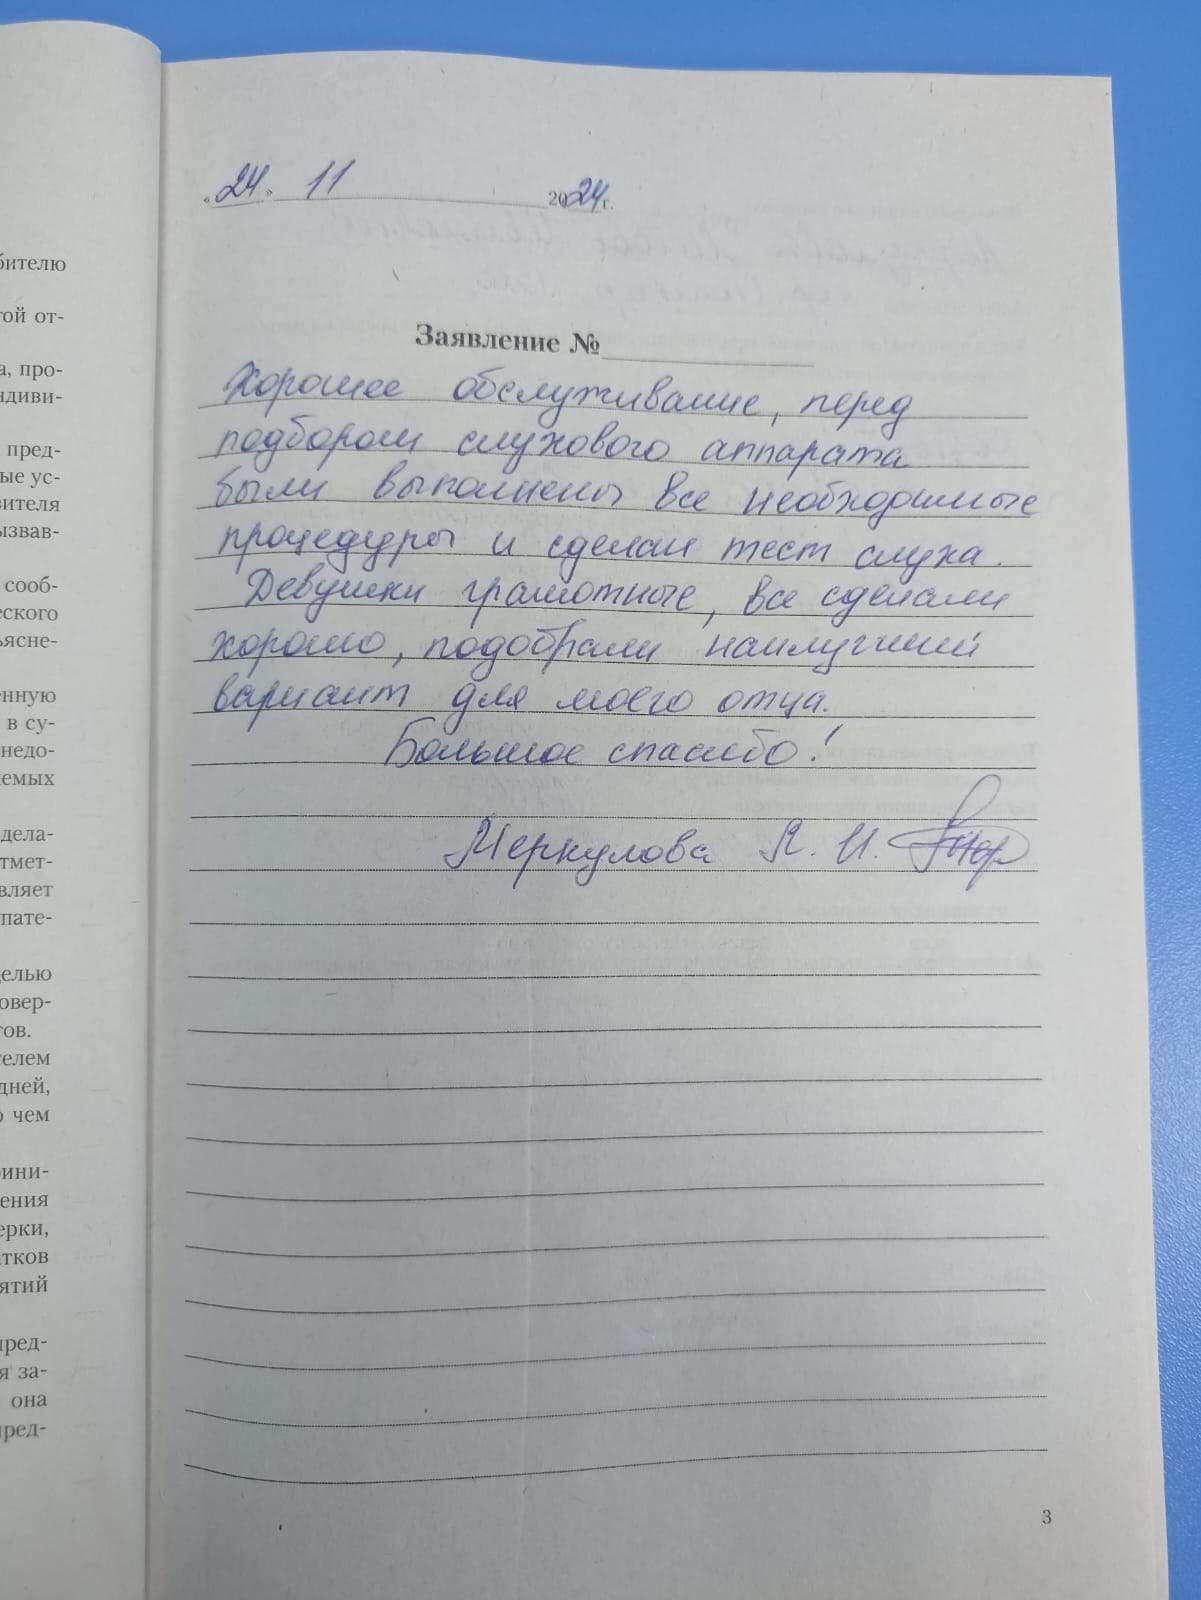 бителю
той от-
а, про-
ндиви-
пред-
ые ус-
вителя
ызвав-
сооб-
еского
ъясне-
енную
в су-
недо-
аемых
дела-
тмет-
вляет
пате-
целью
овер-
тов.
телем
дней,
о чем
рини-
ения
ерки,
атков
ятий
пред-
я за-
она
пред-
«24» 11 2024 г.
Заявление №
Хорошее обслуживание, перед
подбором слухового аппарата
были выполнены все необходимые
процедуры и сделан тест слуха.
Девушки грамотные, все сделали
хорошо, подобрали наилучший
вариант для моего отца.
Большое спасибо!
Меркулова Л. И.
3